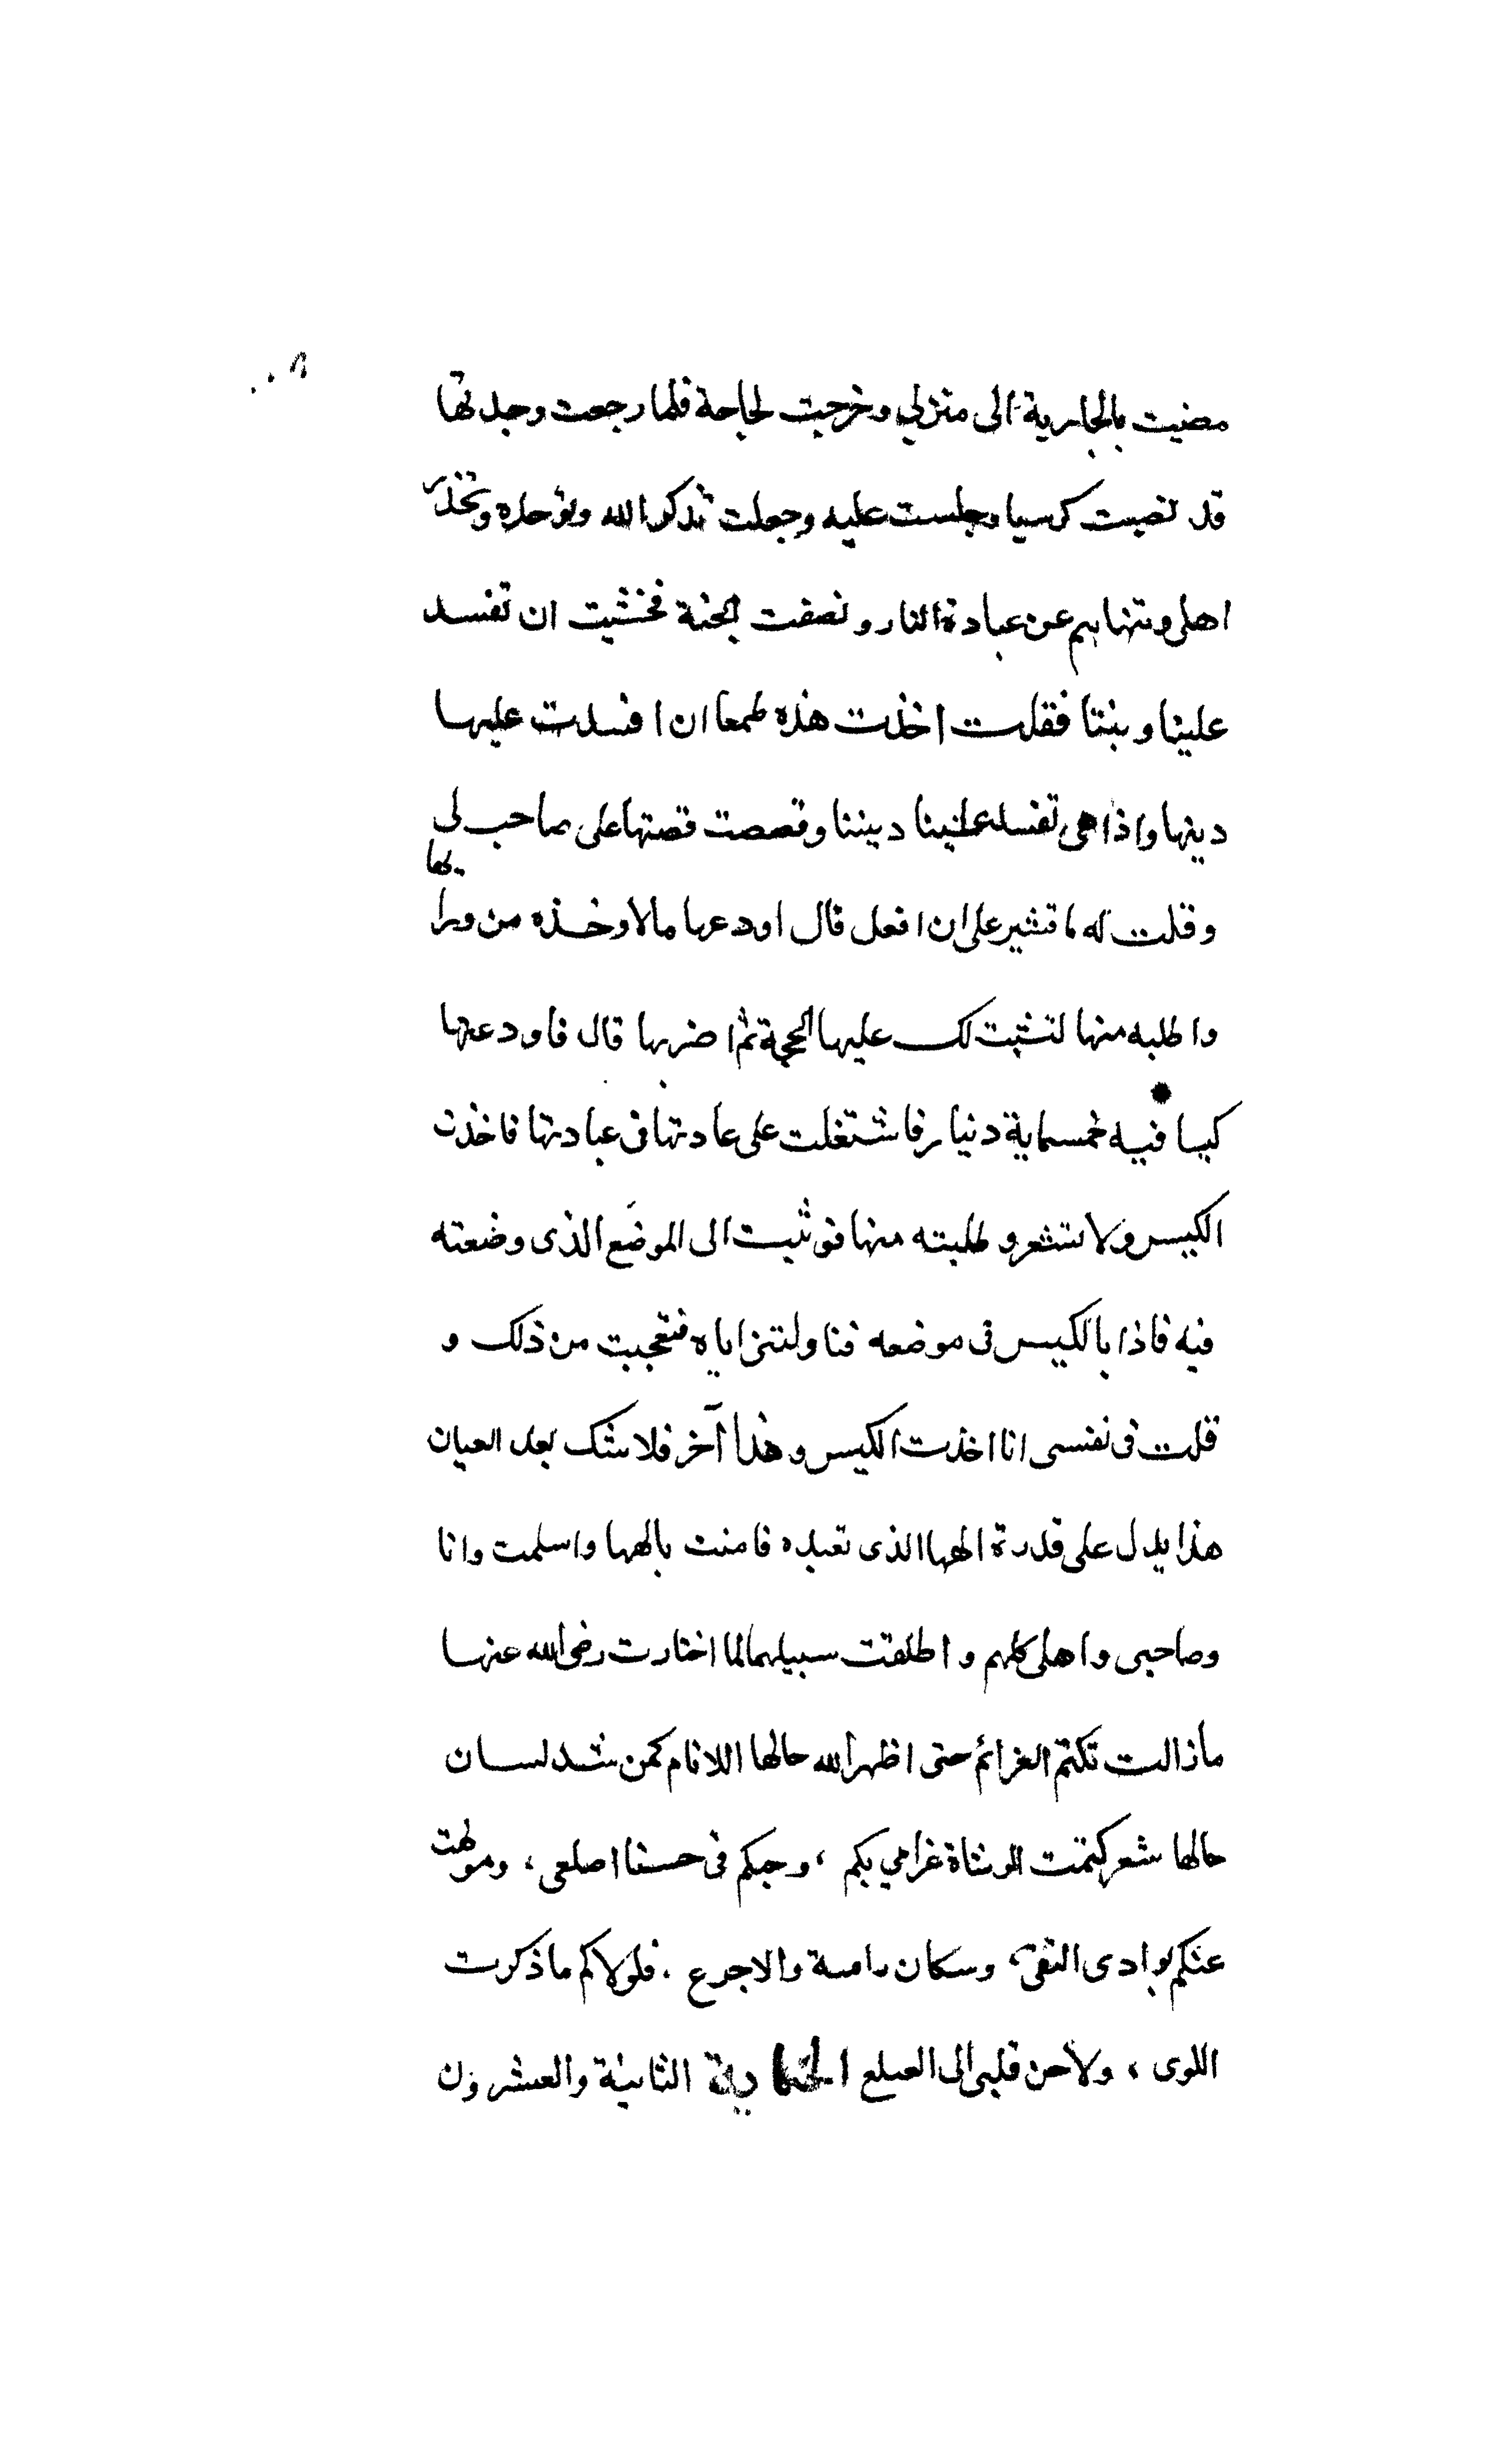 مضيت بالجارية الى منزلي وخرجت لحاجة فلما رجعت وجدتها
قد نصبت كرسيا وجلست عليه وجعلت تذكر الله وتوحده وتحذر
اهلى وتنهاهم عن عبادة النار وتصفت الجنة فخشيت ان تفسد
علينا ديننا فقلت اخذت هذه طمعا ان افسدت عليها
دينها واذا هى تفسد علينا ديننا وقصصت قصتها على صاحب لى
وقلت له ما تشير على ان افعل قال اودعها مالا وخذه من ورايها
واطلبه منها لتثبت لك عليها الحجة ثم اضربها قال فاودعتها
كيسا فيه خمسماية دنيار فاشتغلت على عادتها فى عبادتها فاخذت
الكيس ولا تشعر و طلبته منها فوثبت الى الموضع الذى وضعته
فيه فاذا بالكيس فى موضعه فناولتنى اياه فتعجبت من ذلك و
قلت فى نفسى انا اخذت الكيس وهذا آخر فلا شك بعد العيان
هذا يدل على قدرة الهها الذى تعبده فامنت بالهها واسلمت وانا
وصاحبى واهلى كلهم و اطلقت سبيلها لما اختارت رضى الله عنها
مازالت تكتم الغرائم حتى اظهر الله حالها اللانام كمن شد لسان
حالها شعر كتمت الوشاة غرامي بكم ، وحبكم فى حسنا اضلعى ، وموهت
عنكم بوادى النقى ، وسكان رامة والاجرع . فلولاكم ماذكرت
اللوى ، ولا حن قلبى الى العلع الحكاية الثانية والعشرون